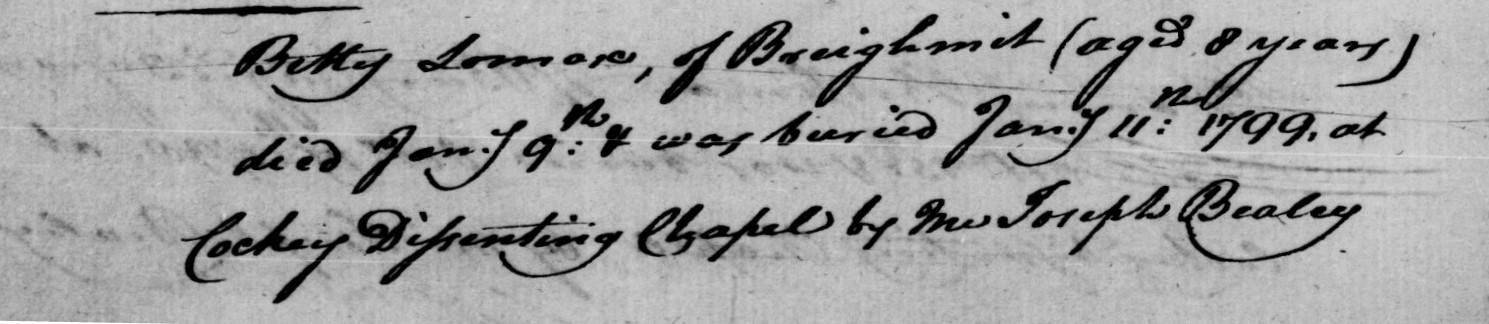 Betty Lomax, of Breighmit (aged 8 years)
died Jan:y 9:th & was buried Jan:y 11:th 1799, at
Cockey Dissenting Chapel by me Joseph Bealey